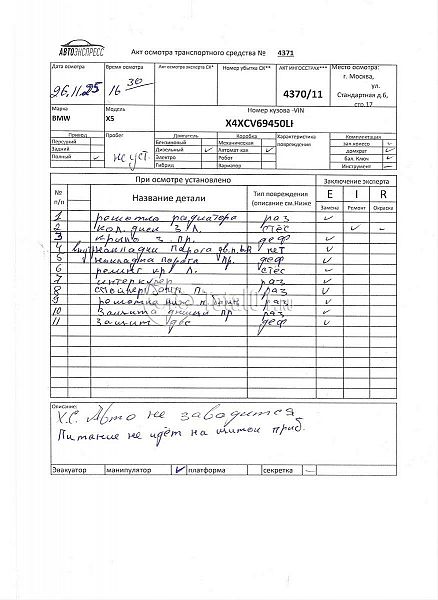 АВТОЭКСПРЕСС
Акт осмотра транспортного средства № 4371
Дата осмотра
Время осмотра
Акт осмотра страховой СК*
Номер убытка СК**
АКТ ИНГОССТРАХ***
Место осмотра:
26.11.25
16 30
4370/11
г. Москва,
ул.
Стандартная д.6,
стр.17
Марка
Модель
Номер кузова -VIN
BMW
X5
X4XCV69450L
Привод
Пробег
Двигатель
Коробка
Характеристика повреждения
Комплектация
Передний
не уст.
Бензиновый
Механическая
зап.колесо ✓
Задний
Дизельный ✓
Автомат-кая ✓
домкрат
Полный ✓
Электро
Робот
бал. Ключ ✓
Гибрид
Вариатор
Инструмент –
№ п/п
При осмотре установлено
Заключение эксперта
Название детали
Тип повреждения (описание см.Ниже
E I R
Замена Ремонт Окраска
1 решетка радиатора раз ✓
2 кол. диск З Л. стёс ✓ –
3 крыло З. пр. деф ✓
4 накладки парога нет ✓
5 накладка порога пр. деф ✓
6 релинг кр Л. стёс ✓
7 интеркулер раз ✓
8 раз ✓
9 решетка ниж п раз ✓
10 Защита пр раз ✓
11 Защит две деф ✓
Описание:
Х.С. Авто не заводится
Питание не идёт на щиток приб.
Эвакуатор манипулятор ✓ платформа секретка –